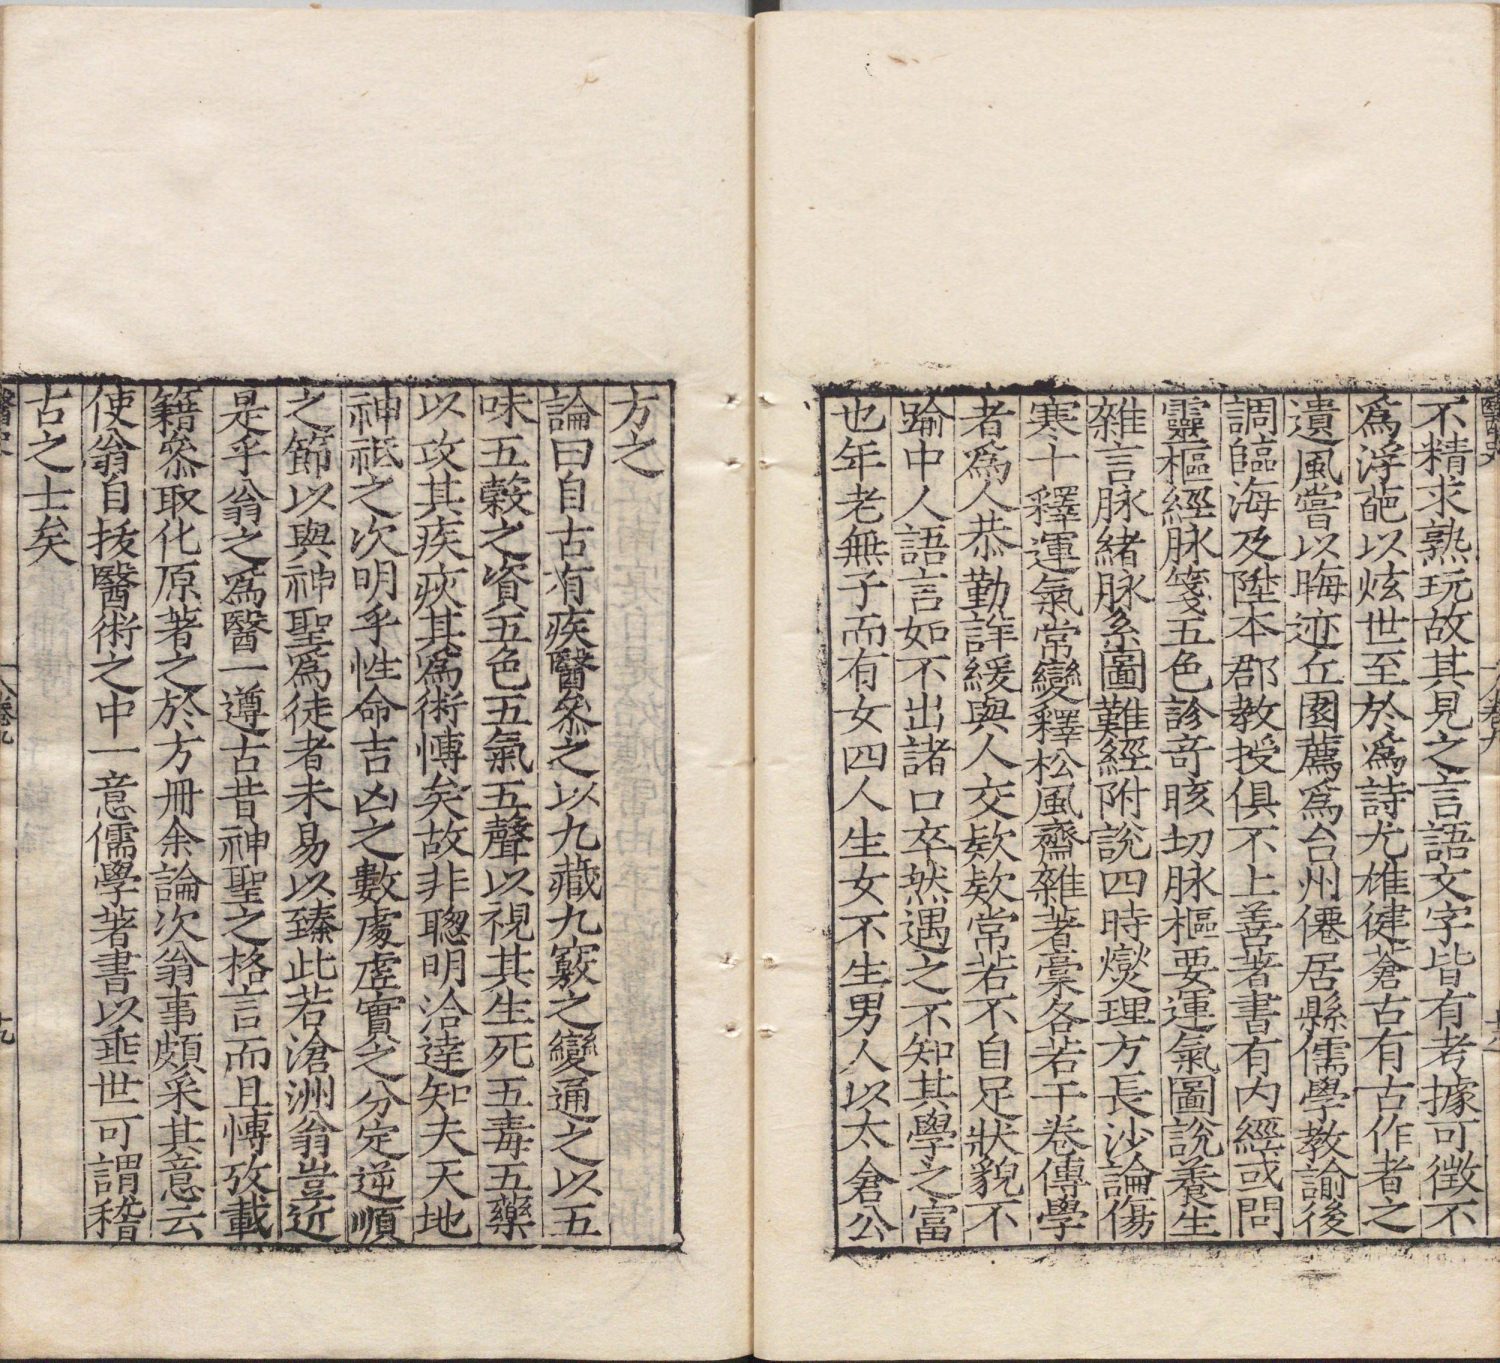 不精求熟玩故其見之言語文字皆有考據可徵不
爲浮葩以炫世至於爲詩尤雄健蒼古有古作者之
遺風嘗以晦迹丘園薦爲台州僊居縣儒學教諭後
調臨海及陞本郡教授俱不上善著書有内經或問
靈樞經脉箋五色診奇胲切脉樞要運氣圖說養生
雜言脉緒脉系圖難經附說四時燮理方長沙論傷
寒十釋運氣常變釋松風齋雜著稾各若干卷傳學
者爲人恭勤詳緩與人交欵欵常若不自足狀貌不
踰中人語言如不出諸口卒然遇之不知其學之富
也年老無子而有女四人生女不生男人以太倉公
方之
論曰自古有疾醫叅之以九藏九竅之變通之以五
味五穀之資五色五氣五聲以視其生死五毒五藥
以攻其疾疢其爲術慱矣故非聰明洽達知夫天地
神祇之次明乎性命吉凶之數處虛實之分定逆順
之節以與神聖爲徒者未易以臻此若滄洲翁豈近
是乎翁之爲醫一遵古昔神聖之格言而且慱攷載
籍叅取化原著之於方冊余論次翁事頗采其意云
使翁自拔醫術之中一意儒學著書以垂世可謂稽
古之士矣